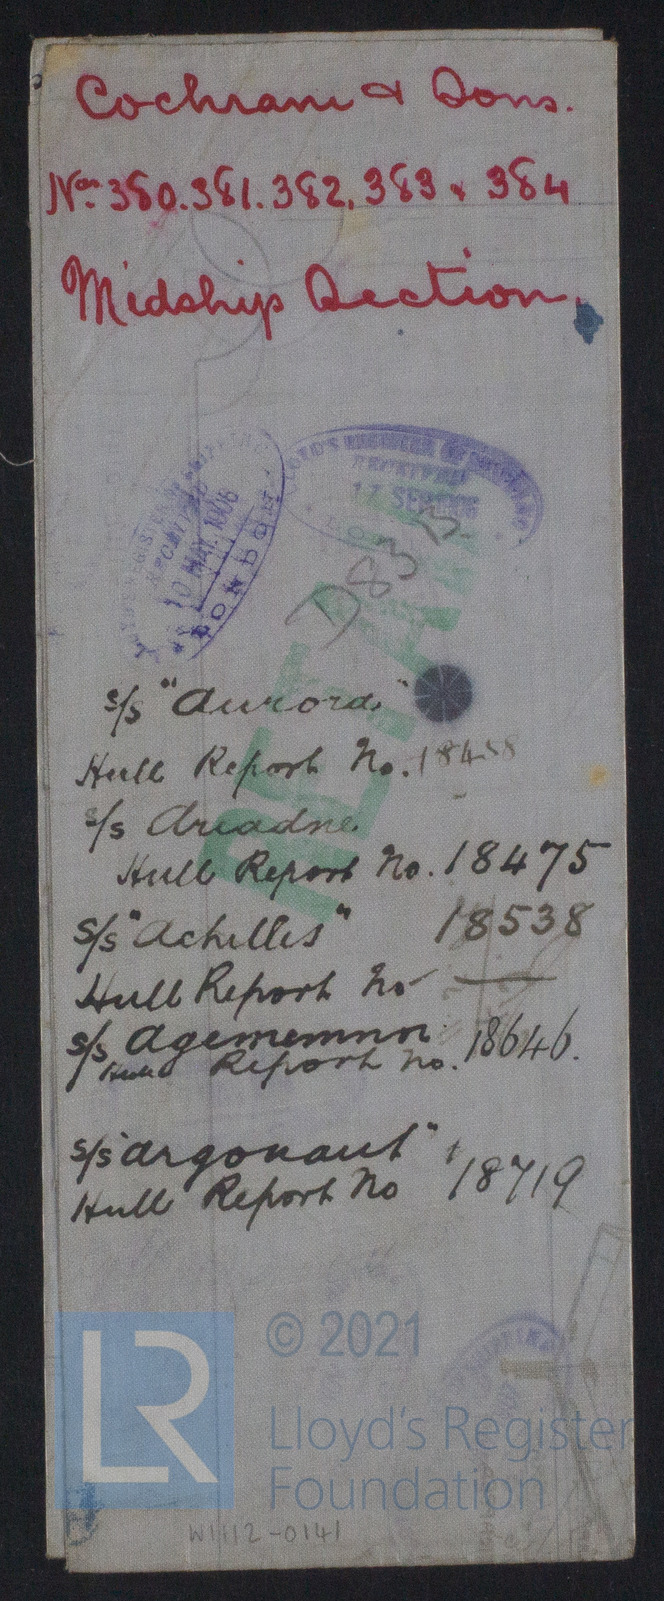 Cochrane & Sons.
Nos. 380. 381. 382. 383 & 384
Midship Section.
LLOYD'S REGISTER OF SHIPPING
RECEIVED
17 SEP
10 MAY 1906
LONDON
D83
RETAIN
s/s "Aurora"
Hull Report No. 18458
s/s Ariadne
Hull Report No. 18475
s/s "Achilles" 18538
Hull Report No
s/s Agememnon
Hull Report No. 18646.
s/s "argonaut"
Hull Report No 18719
LR
© 2021
Lloyd's Register
Foundation
W1112-0141